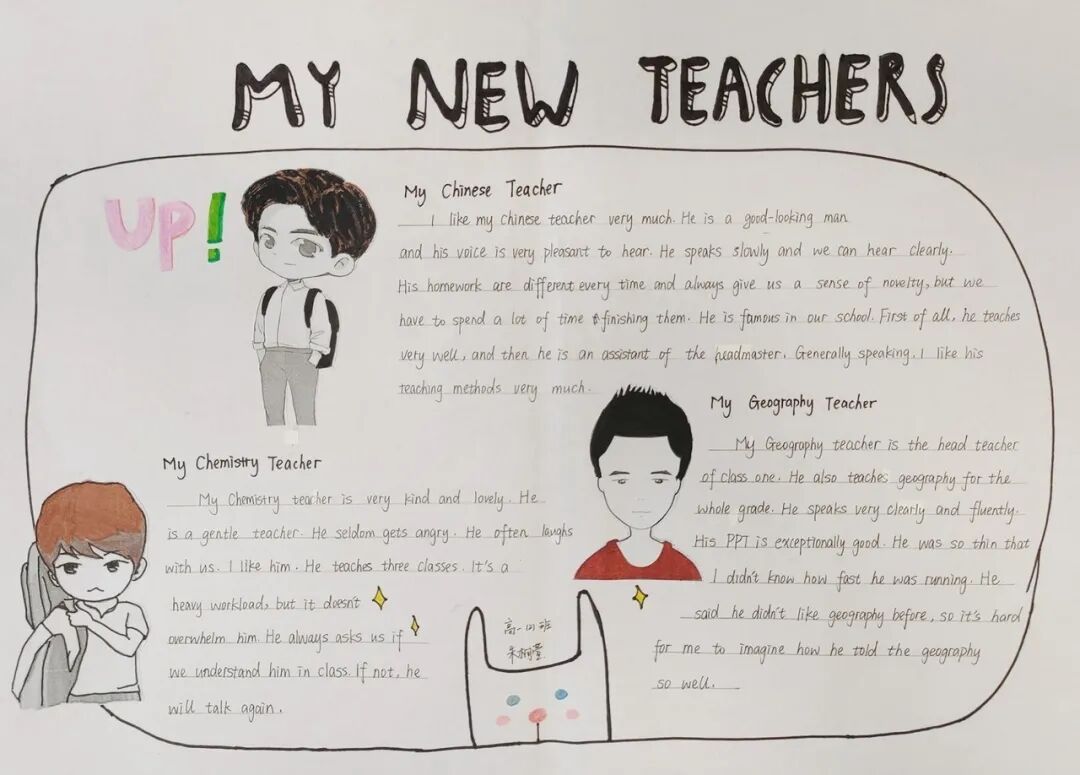 MY NEW TEACHERS
UP!
My Chinese Teacher
I like my chinese teacher very much. He is a good-looking man
and his voice is very pleasant to hear. He speaks slowly and we can hear clearly.
His homework are different every time and always give us a sense of novelty, but we
have to spend a lot of time finishing them. He is famous in our school. First of all, he teaches
very well, and then he is an assistant of the headmaster. Generally speaking, I like his
teaching methods very much.
My Geography Teacher
My Geography teacher is the head teacher
of class one. He also teaches geography for the
whole grade. He speaks very clearly and fluently.
His PPT is exceptionally good. He was so thin that
I didn't know how fast he was running. He
said he didn't like geography before, so it's hard
for me to imagine how he told the geography
so well.
My Chemistry Teacher
My Chemistry teacher is very kind and lovely. He
is a gentle teacher. He seldom gets angry. He often laughs
with us. I like him. He teaches three classes. It's a
heavy workload, but it doesn't
overwhelm him. He always asks us if
we understand him in class. If not, he
will talk again.
高一
班